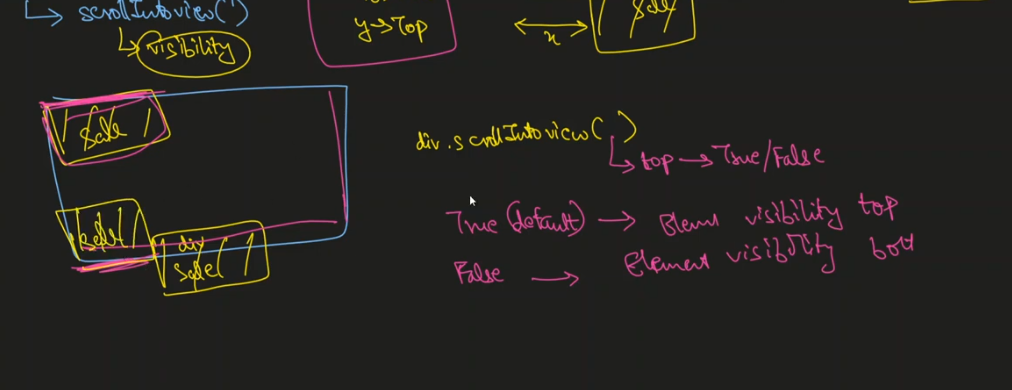 scrollIntoview( )
visibility
y → Top
x
Sale
Sale
Sale
div
Sale
div.scrollIntoview( )
top → True/False
True (default) → Elemnt visibility top
False → Element visibility bott